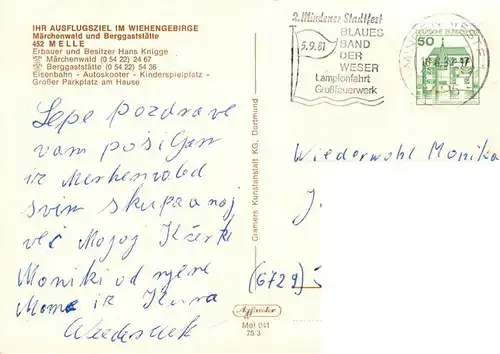 IHR AUSFLUGSZIEL IM WIEHENGEBIRGE
Märchenwald und Berggaststätte
452 MELLE
Erbauer und Besitzer Hans Knigge
Märchenwald (0 54 22) 24 67
Berggaststätte (0 54 22) 54 36
Eisenbahn - Autoskooter - Kinderspielplatz -
Großer Parkplatz am Hause
2. Mindener Stadtfest
5.9.81
BLAUES
BAND
DER
WESER
Lampionfahrt
Großfeuerwerk
DEUTSCHE BUNDESPOST
50
Lepe Pozdrave
vam posiljam
iz
svim skupa
već Mojoj Kčerki
Moniki od njene
Mame iz
Wiederwohl Monika
J.
(6729)
Cramers Kunstanstalt KG, Dortmund
Mel 041
75 3